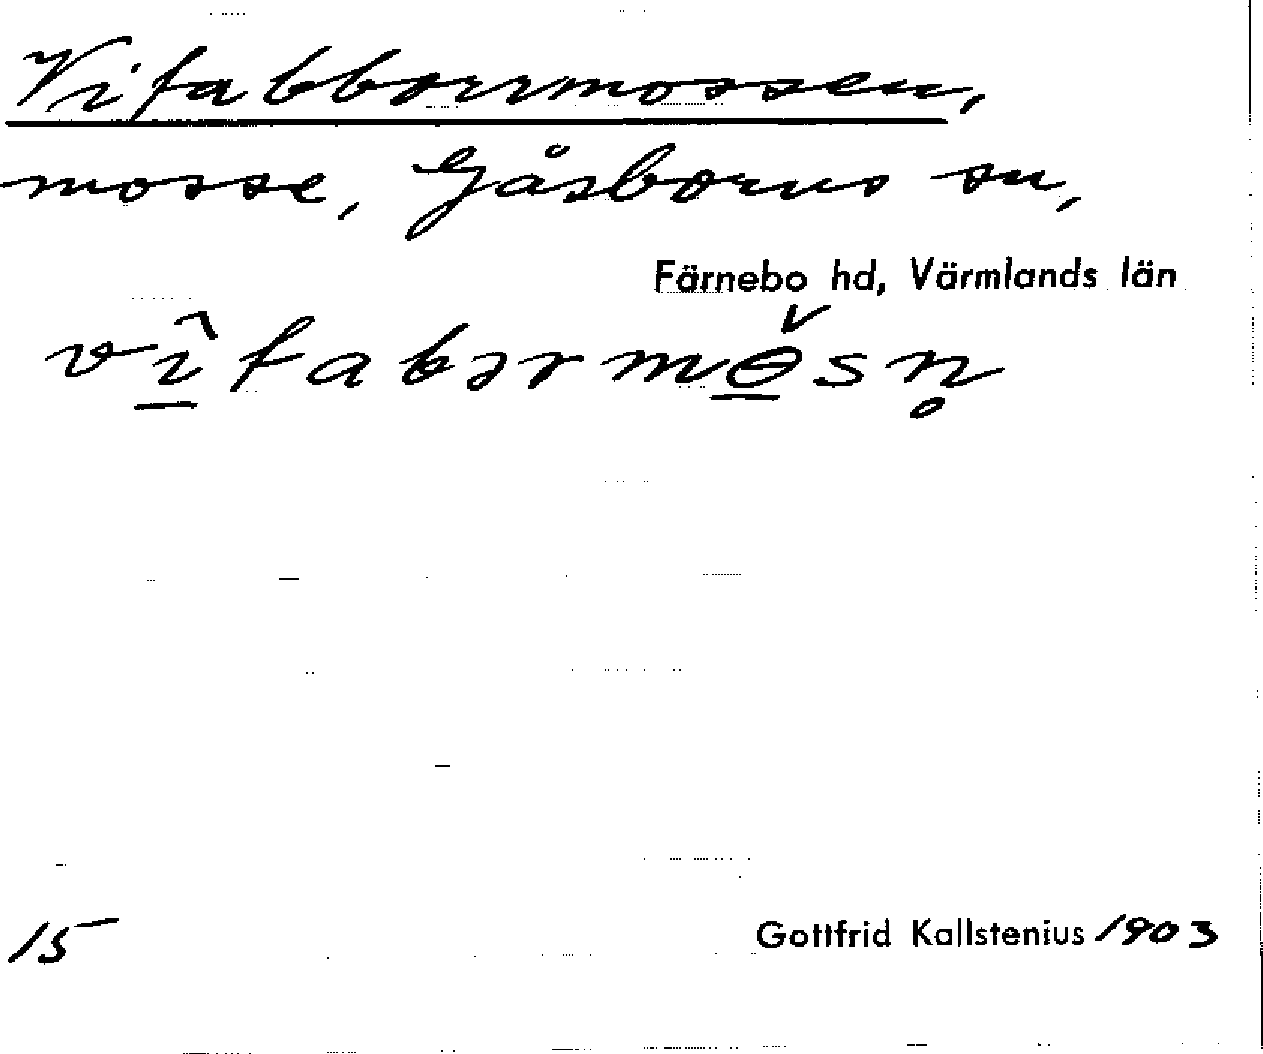 Vifabborrmossen,
mosse, Gåsborns sn,
Färnebo hd, Värmlands län
vî̱fabərmɵ̱̌sn̥
15
Gottfrid Kallstenius 1903